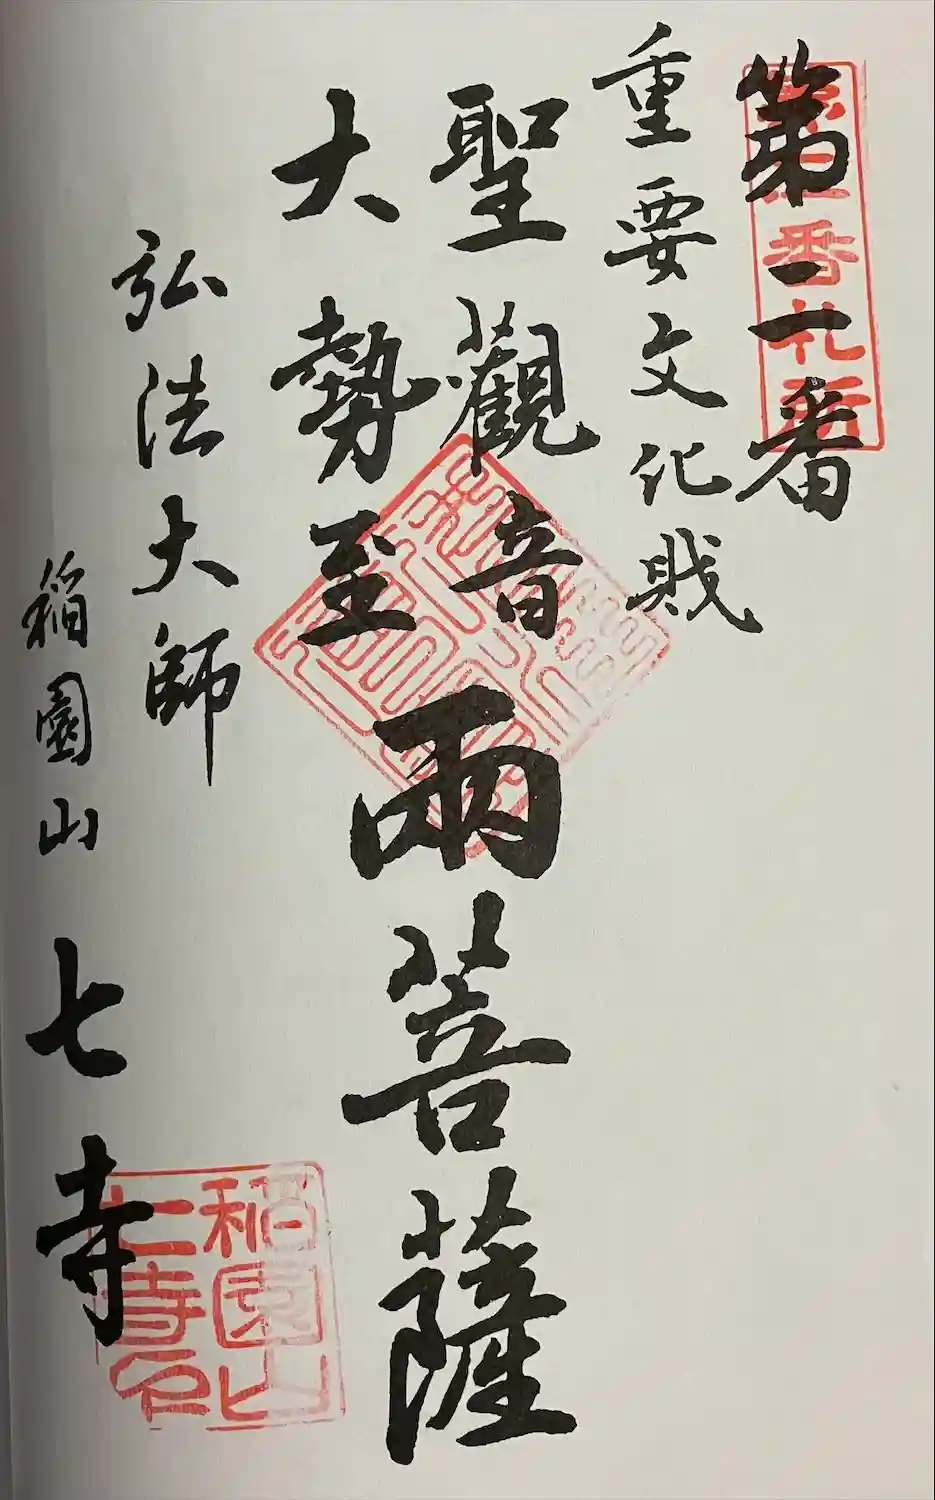 第二番
番札所
重要文化財
聖觀音
大勢至
兩菩薩
弘法大師
稻園山 七寺
稻園山
七寺印